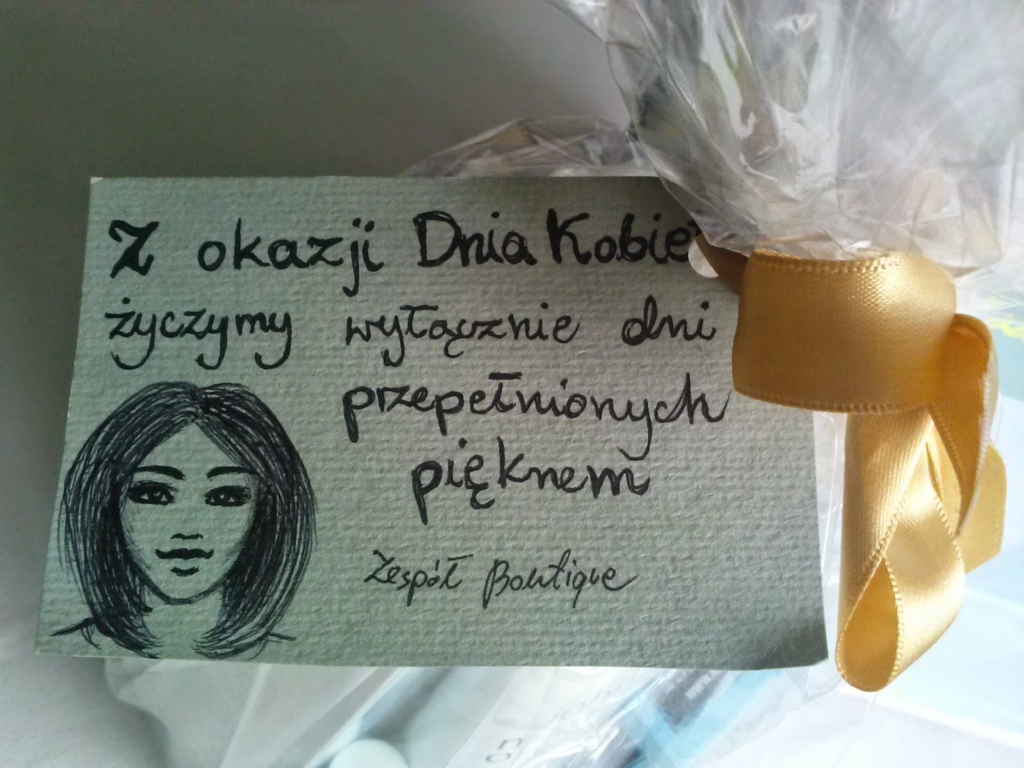 Z okazji Dnia Kobiet
życzymy wyłącznie dni
przepełnionych
pięknem
Zespół Boutique